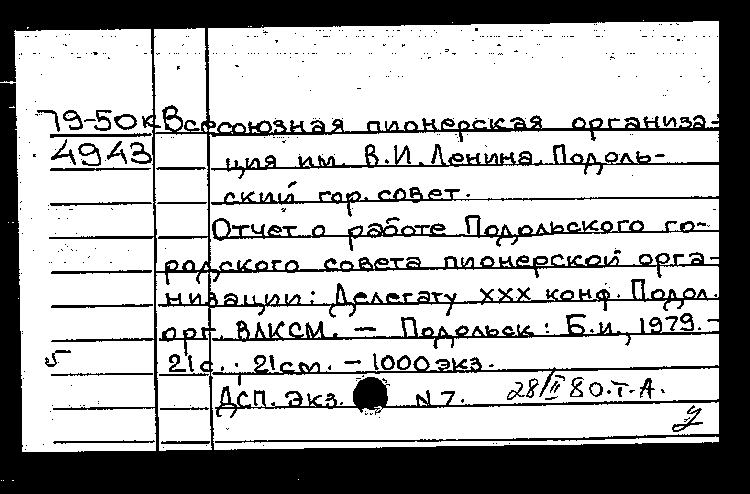 79-50к Всесоюзная пионерская организа-
4943 ция им. В.И. Ленина. Подоль-
ский гор. совет.
Отчет о работе Подольского го-
родского совета пионерской орга-
низации: Делегату XXX конф. Подол.
орг. ВЛКСМ. — Подольск: Б.и., 1979. -
21с.; 21см. — 1000 экз.
ДСП. Экз. N 7. 28/II 80. Т.А.